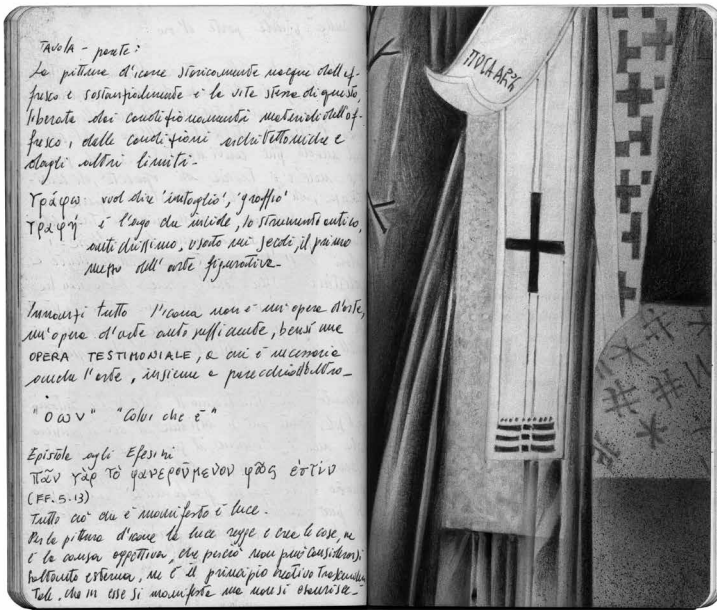 TAVOLA - parete:
La pittura d'icone storicamente nacque dall'af-
fresco e sostanzialmente è la vita stessa di questo,
liberata dai condizionamenti materiali dell'af-
fresco, dalle condizioni architettoniche e
dagli altri limiti.
Γράφω vuol dire 'intaglio', 'graffio'
Γραφή è l'ago che incide, lo strumento antico,
antichissimo, usato nei secoli, il primo
mezzo dell'arte figurativa.
Innanzi tutto l'icona non è un'opera d'arte,
un'opera d'arte auto sufficiente, bensì una
OPERA TESTIMONIALE, a cui è necessaria
anche l'arte, insieme a parecchio d'altro.
"ὁ ων" "Colui che è"
Epistola agli Efesini
πᾶν γὰρ τὸ φανερούμενον φῶς ἐστίν
(EF. 5.13)
Tutto ciò che è manifesto è luce.
Per la pittura d'icone la luce regge e crea le cose, ne
è la causa oggettiva, che perciò non può considerarsi
soltanto esterna, ne è il principio creativo trascenden
tale, che in esse si manifesta ma non si esaurisce.